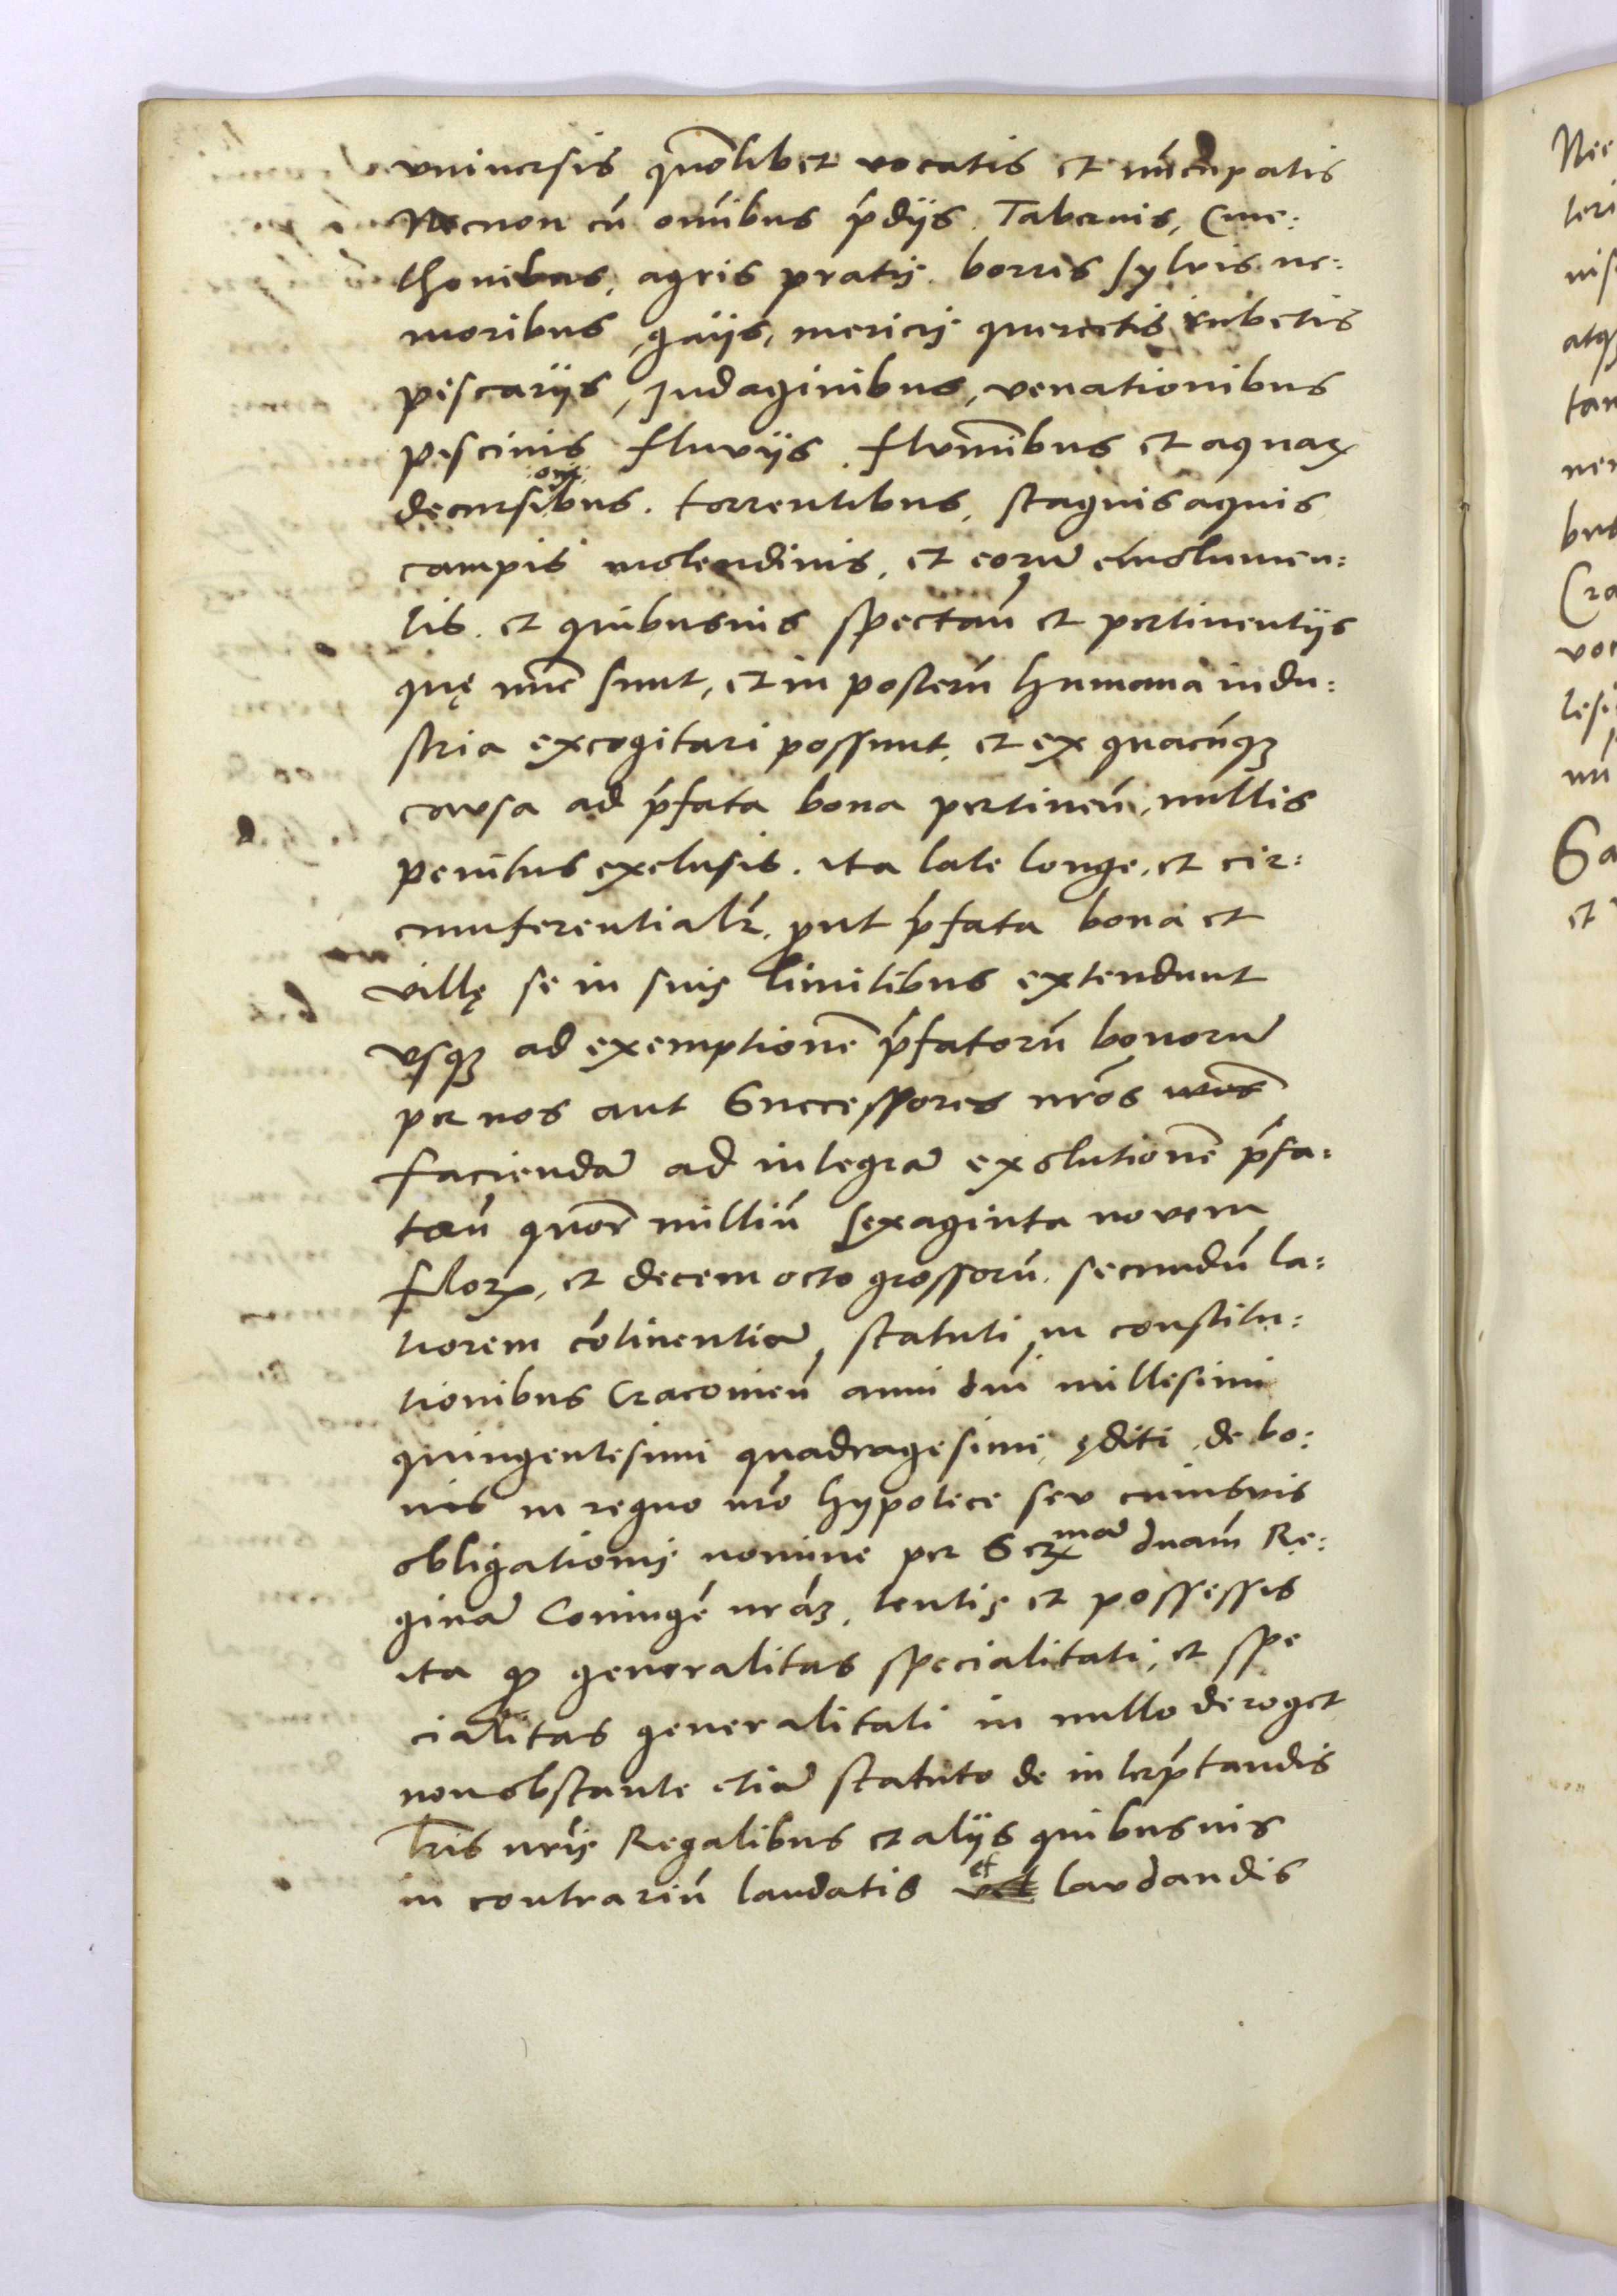 vniuersis quõlibet vocatis et nũcupatis
Necnon cũ omĩbus p̃dijs. Tabernis, Cme:
thonibus, agris pratis. borris syluis ne:
moribus, gaijs, mericis quercetis rubetis
piscarijs, Indaginibus, venationibus
piscinis fluvijs. flumĩbus et aquaꝝ
decursibus. torrentibus, stagnis aquis
campis molendinis, et eorũ emolumen:
tis. et quibusuis spectañ et pertinentijs
quę nũc sunt, et in posterũ humana indu:
stria excogitari possunt, et ex quacũqꝫ
causa ad p̃fata bona pertineñ, nullis
penitus exclusis. ita late longe, et cir:
cumferentialr̃. put p̃fata bona et
villę se in suis limitibus extendunt
vsqꝫ ad exemptionẽ p̃fatorũ bonorũ
per nos aut Successores nr̃os
faciendã ad integrã exolutionẽ p̃fa:
tarũ quor̃ milliũ sexaginta novem
floꝝ, et decem octo grossorũ. secundũ la:
tiorem cõtinentiã, statuti, in constitu:
tionibus Cracouieñ anni dñi millesimi
quingentesimi quadragesimi, ęditi, de bo:
nis in regno nr̃o hypotece seu cuiusvis
obligationis nomine per Serꝫmã dnãm Re:
ginã Coniugẽ nr̃aꝫ, tentis et possessis
ita ꝙ generalitas specialitati, et spe
cialitas generalitati in nullo deroget
non obstante etiã statuto de interp̃tandis
lr̃is nr̃is Regalibus et alijs quibusuis
in contrariũ laudatis et laudandis